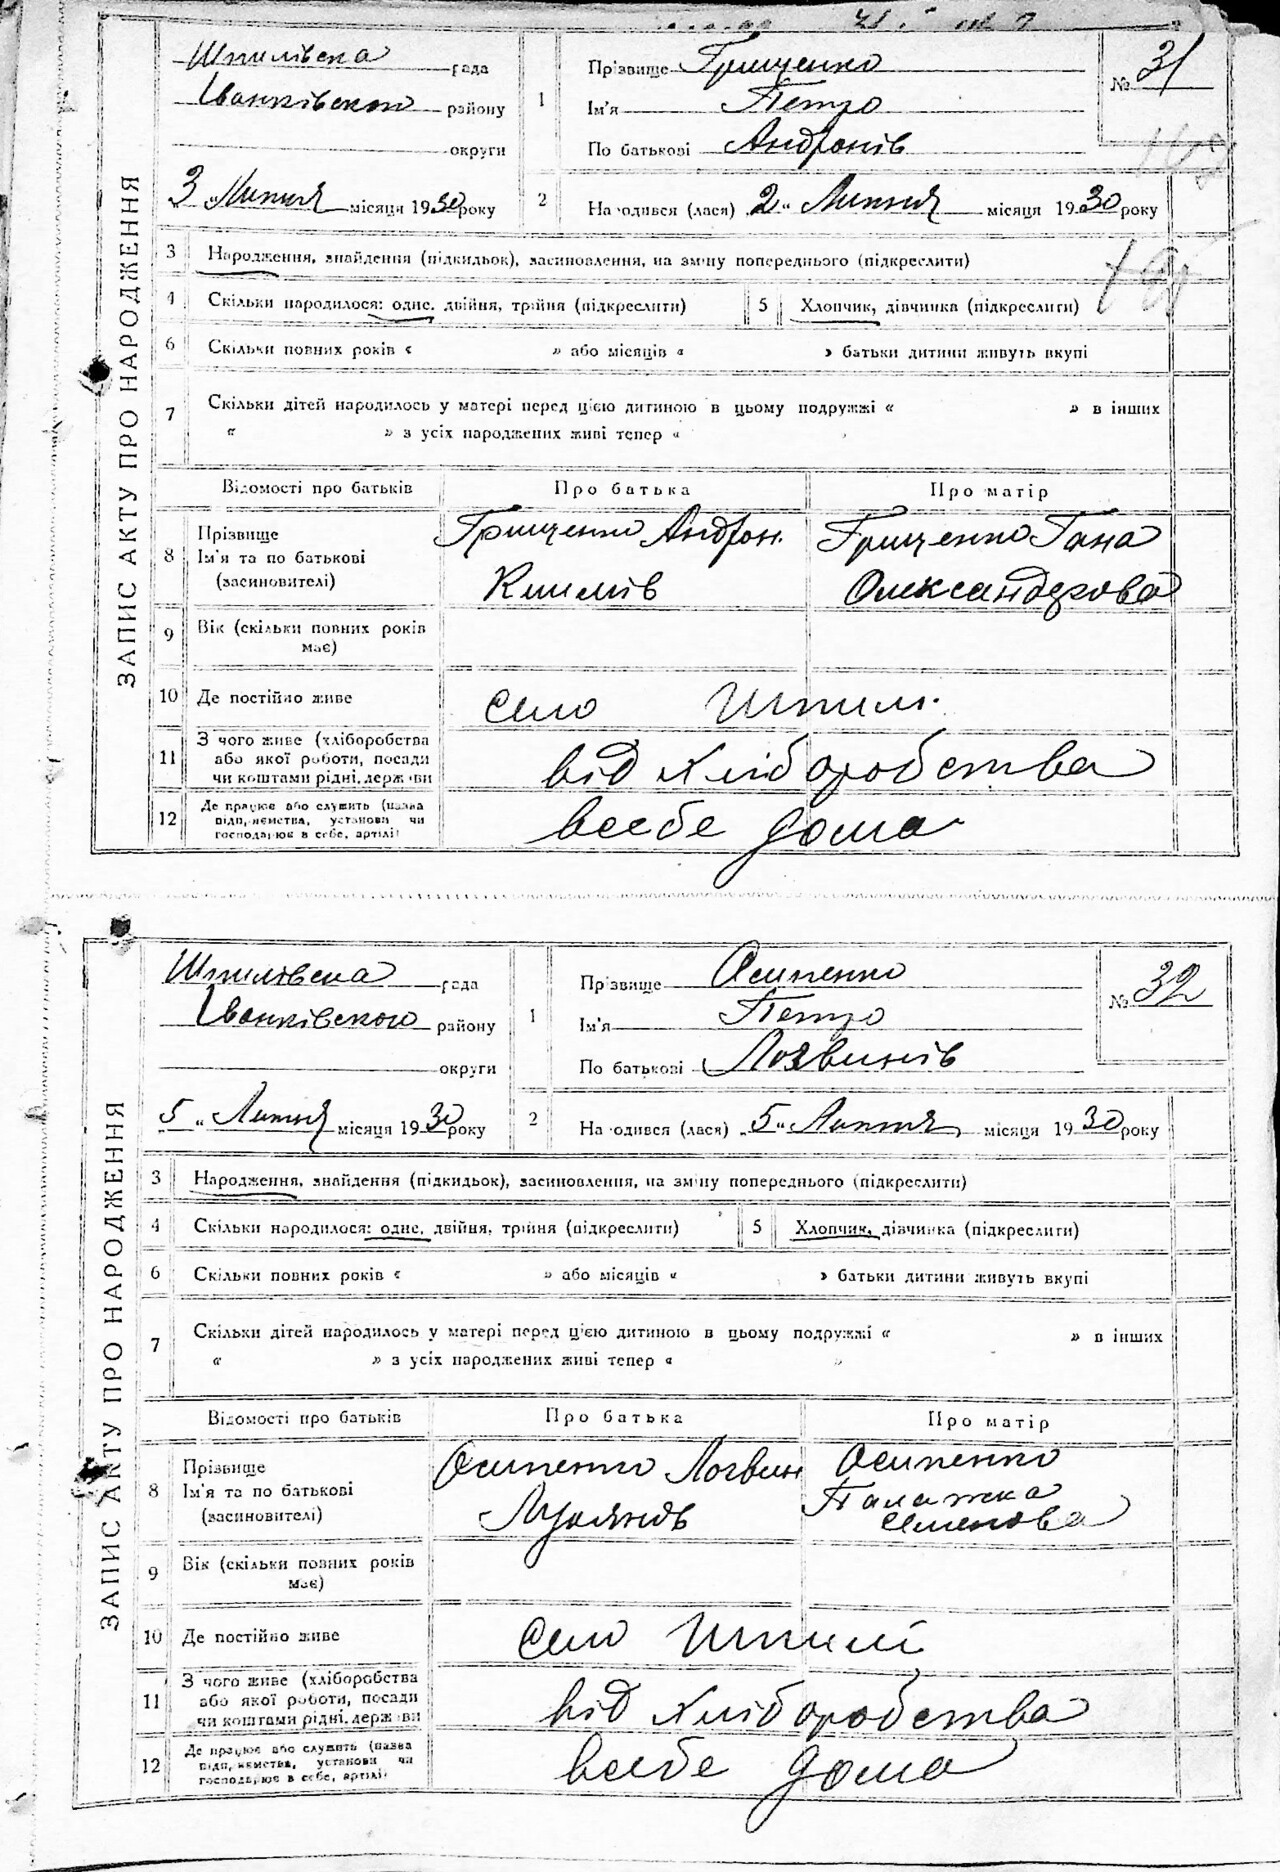 ЗАПИС АКТУ ПРО НАРОДЖЕННЯ
Шпилівська рада
Іванківського району
округи
3 „ Липня місяця 1930 року
1
Прізвище Грищенко
Ім'я Петро
По батькові Андронів
№ 31
2
На одився (лася) 2 „ Липня місяця 1930 року
3 Народження, знайдення (підкидьок), засиновлення, на зміну попереднього (підкреслити)
4 Скільки народилося: одне, двійня, трійня (підкреслити) 5 Хлопчик, дівчинка (підкреслити)
6 Скільки повних років « » або місяців « » батьки дитини живуть вкупі
7 Скільки дітей народилось у матері перед цією дитиною в цьому подружжі « » в інших
« » з усіх народжених живі тепер «
Відомості про батьків Про батька Про матір
8 Прізвище
Ім'я та по батькові
(засиновителі)
Грищенко Андрон
Климів
Грищенко Гана
Олександрова
9 Вік (скільки повних років
має)
10 Де постійно живе село Шпилі
11 З чого живе (хліборобства
або якої роботи, посади
чи коштами рідні, держ ви
від хліборобства
12 Де працює або служить (назва
підприємства, установи чи
господарює в себе, артілі)
всебе дома
ЗАПИС АКТУ ПРО НАРОДЖЕННЯ
Шпилівська рада
Іванківського району
округи
5 „ Липня місяця 1930 року
1
Прізвище Осипенко
Ім'я Петро
По батькові Лозвинів
№ 32
2
На одився (лася) „ 5 „ Липня місяця 1930 року
3 Народження, знайдення (підкидьок), засиновлення, на зміну попереднього (підкреслити)
4 Скільки народилося: одне, двійня, трійня (підкреслити) 5 Хлопчик, дівчинка (підкреслити)
6 Скільки повних років « » або місяців « » батьки дитини живуть вкупі
7 Скільки дітей народилось у матері перед цією дитиною в цьому подружжі « » в інших
« » з усіх народжених живі тепер «
Відомості про батьків Про батька Про матір
8 Прізвище
Ім'я та по батькові
(засиновителі)
Осипенко Логвин
Лукянів
Осипенко
Палажка
Семенова
9 Вік (скільки повних років
має)
10 Де постійно живе село Шпилі
11 З чого живе (хліборобства
або якої роботи, посади
чи коштами рідні, держ ви
від хліборобства
12 Де працює або служить (назва
підприємства, установи чи
господарює в себе, артілі)
всебе дома